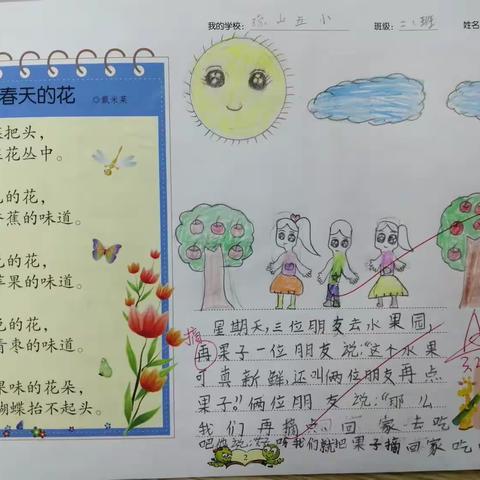 我的学校：
山五小
班级：二1班
姓名
春天的花
◎戴米莱
把头，
花丛中。
的花，
蕉的味道。
的花，
苹果的味道。
色的花，
青枣的味道。
果味的花朵，
蝴蝶抬不起头。
星期天,三位朋友去水果园,
摘
再果子一位朋友说:“这个水果
可真新鲜,还叫俩位朋友再点
果子。”俩位朋友说:“那么
我们再摘点回家去吃
吧他说:好哟我们就把果子摘回家吃
2